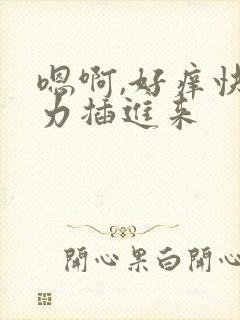 嗯啊,好痒快
力插進来
開心果白開心